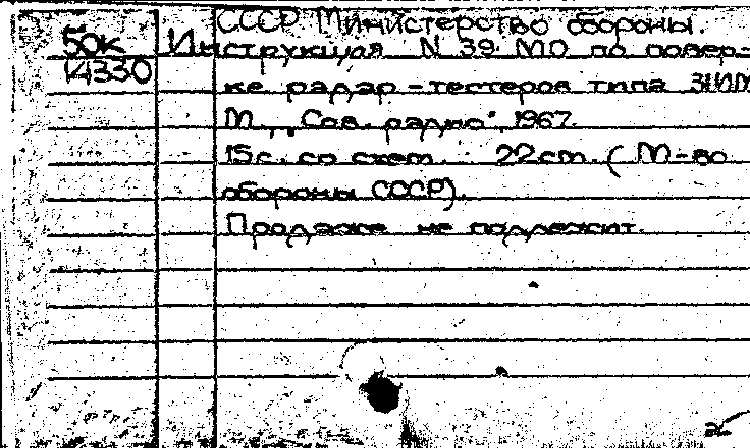 СССР. Министерство обороны.
Бок
14330
Инструкция N 39 МО по повер-
ке радар-тестеров типа ЗИМ
М., „Сов. радио“, 1967.
15с. со схем. 22 cm. (М-во
обороны СССР).
Продаже не подлежит.